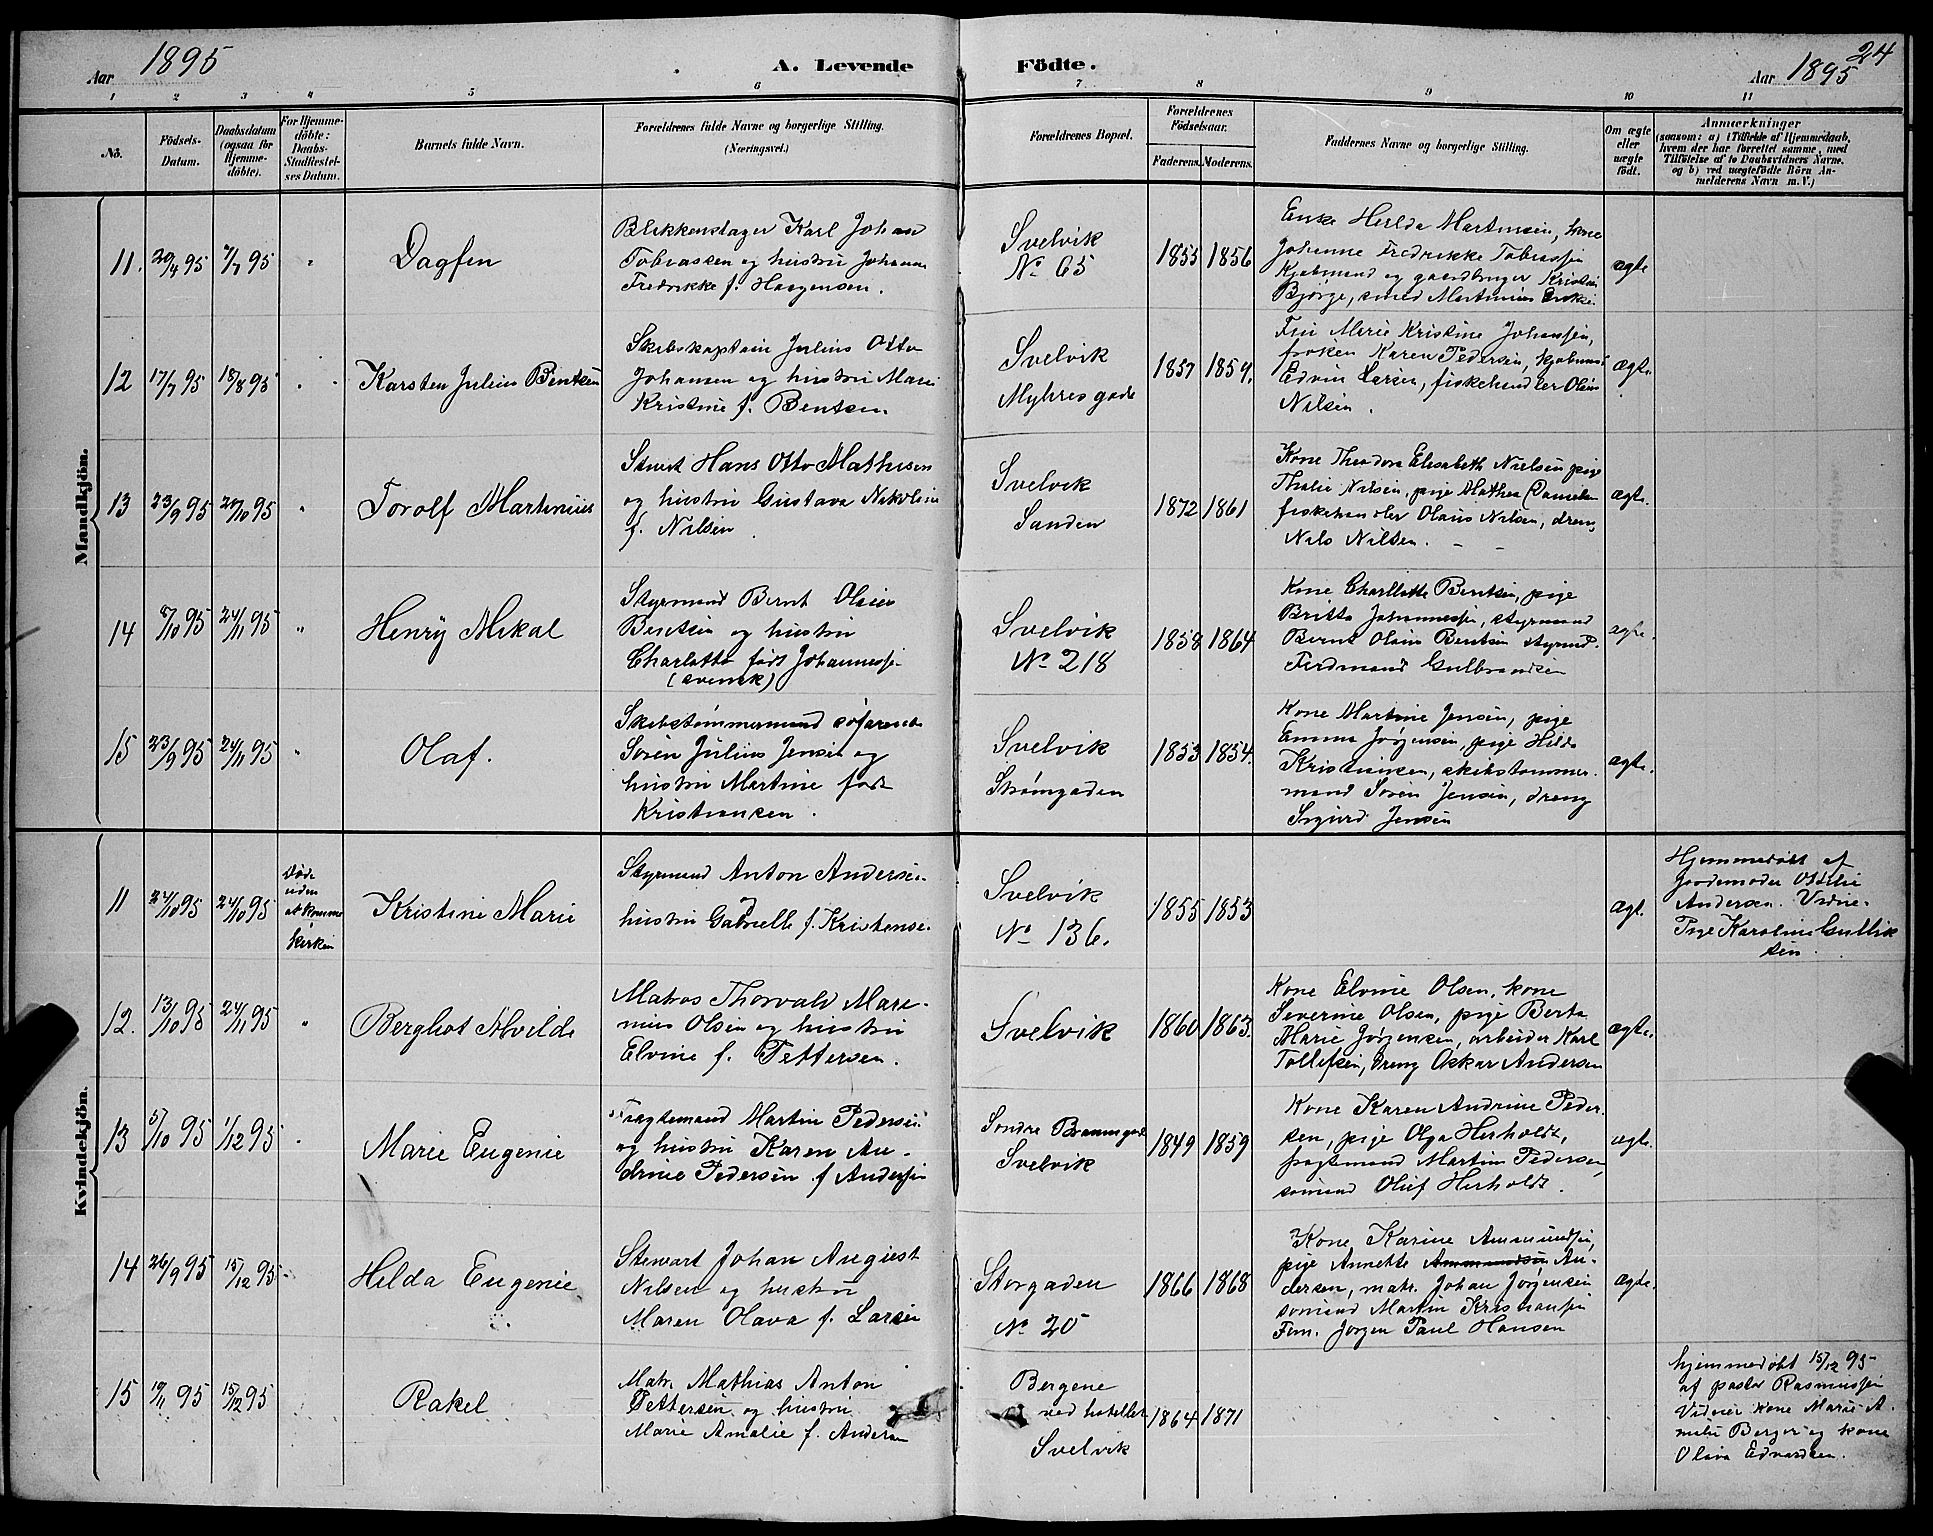 Aar 1895
A. Levende Födte.
Aar 1895
24
1 2 3 4 5 6 7 8 9 10 11
No.
Födsels-
Datum.
Daabsdatum
(ogsaa for
Hjemme-
döbte).
For Hjemme-
döbte:
Daabs-
Stadfæstel-
ses Datum.
Barnets fulde Navn.
Forældrenes fulde Navne og borgerlige Stilling.
(Næringsvei.)
Forældrenes Bopæl.
Forældrenes
Födselsaar.
Faderens. Moderens.
Faddernes Navne og borgerlige Stilling.
Om ægte
eller
uægte
født.
Anmærkninger
(saasom: a) i Tilfælde af Hjemmedaab,
hvem der har forrettet samme, med
Tilföielse af to Daabsvidners Navne,
og b) ved uægtefödte Börn An-
melderens Navn m. V.)
Mandkjön.
11. 20/4 95 7/7 95 "
Dagfen
Blikkenslager Karl Johan
Tobiassen og hustru Johanne
Fredrikke f. Haagensen.
Svelvik
No 65
1855 1856
Enke Hilda Martinsen, kone
Johanne Fredrikke Tobiassen
Kjøbmand og gaardbruger Kristian
Bjørge, smed Martinius
ægte
12 17/7 95 18/8 95 "
Karsten Julius Bentsen
Skibskaptein Julius Otto
Johansen og hustru Marie
Kristine f. Bentsen
Svelvik
Myhresgade
1857 1859.
Fru Marie Kristine Johansen,
frøken Karen Pedersen, kjøbmand
Edvin Larsen, fiskehandler Olaus
Nilsen.
ægte.
13 23/9 95 20/10 95 "
Torolf Martinius
Stuert Hans Otto Mathisen
og hustru Gustava Nikoline
f. Nilsen
Svelvik
Sanden
1872 1861
Kone Theodora Elisabeth Nielsen, pige
Thalie Nilsen, pige Mathea Danielsen
fiskehandler Olaus Nilsen, dreng
Nils Nilsen.
ægte.
14 8/10 95 24/11 95 "
Henry Mikal
Styrmand Bernt Olaus
Bentsen og hustru
Charlotte født Johannessen
(svensk)
Svelvik
No 218
1858 1864
Kone Charllotte Bentsen, pige
Britta Johannessen, styrmand
Bernt Olaus Bentsen styrmd.
Ferdinand Gulbrandsen
ægte.
15 23/9 95 24/11 95 "
Olaf.
Skibstømmermand søfarende
Søren Julius Jensen og
hustru Martine født
Kristiansen.
Svelvik
Strømgaden
1853 1854.
Kone Martine Jensen, pige
Emma Jørgensen, pige Hilda
Kristiansen, skibstømmer-
mand Søren Jensen, dreng
Sigurd Jensen
ægte.
Kvindekjön.
11 24/10 95 24/10 95
Døde
uden
at komme
kirken
Kristine Marie
Styrmand Anton Andersen
hustru Gabrielle f. Kristensen
Svelvik
No 136.
1855 1853
ægt.
Hjemmedøbt af
jordemoder Ottilie
Andersen. Vidne.
Pige Karoline Gullik
sen.
12. 13/10 95 24/11 95 "
Bergliot Alvilde
Matros Thorvald Mari-
nius Olsen og hustru
Elvine f. Pettersen.
Svelvik
1860 1863.
Kone Elvine Olsen, kone
Severine Olsen, pige Berta
Marie Jørgensen, arbeider Karl
Tollefsen, Dreng Oskar Andersen
ægte.
13 5/10 95 1/12 95 "
Marie Eugenie
Fragtemand Martin Pedersen
og hustru Karen An-
drine Pedersen f Andersen
Søndre
Svelvik
1849 1859
Kone Karen Andrine Peder
sen, pige Olga Herholdt,
fragtmand Martin Pedersen
sømand Oluf Herholdt.
ægte.
14 26/9 95 15/12 95 -
Hilda Eugenie
Stewart Johan August
Nilsen og hustru
Maren Olava f. Larsen
Storgaden
No 20
1866 1868
Kone Karine Ammundsen,
pige Annette Ammundsen An-
dersen, matr. Johan Jørgensen
sømand Martin Kristiansen
Tøm. Jørgen Paul Hansen
ægte.
15 19/11 95 15/12 95
Rakel
Matr. Mathias Anton
Pettersen og hustru
Marie Amalie f. Andersen
Bergene
ved hotellet
Svelvik
1864 1871
hjemmedøbt 15/12 95
af pastor Rasmussen
Vidner kone Marie A
malie Berger og kone
Olava Edvardsen.